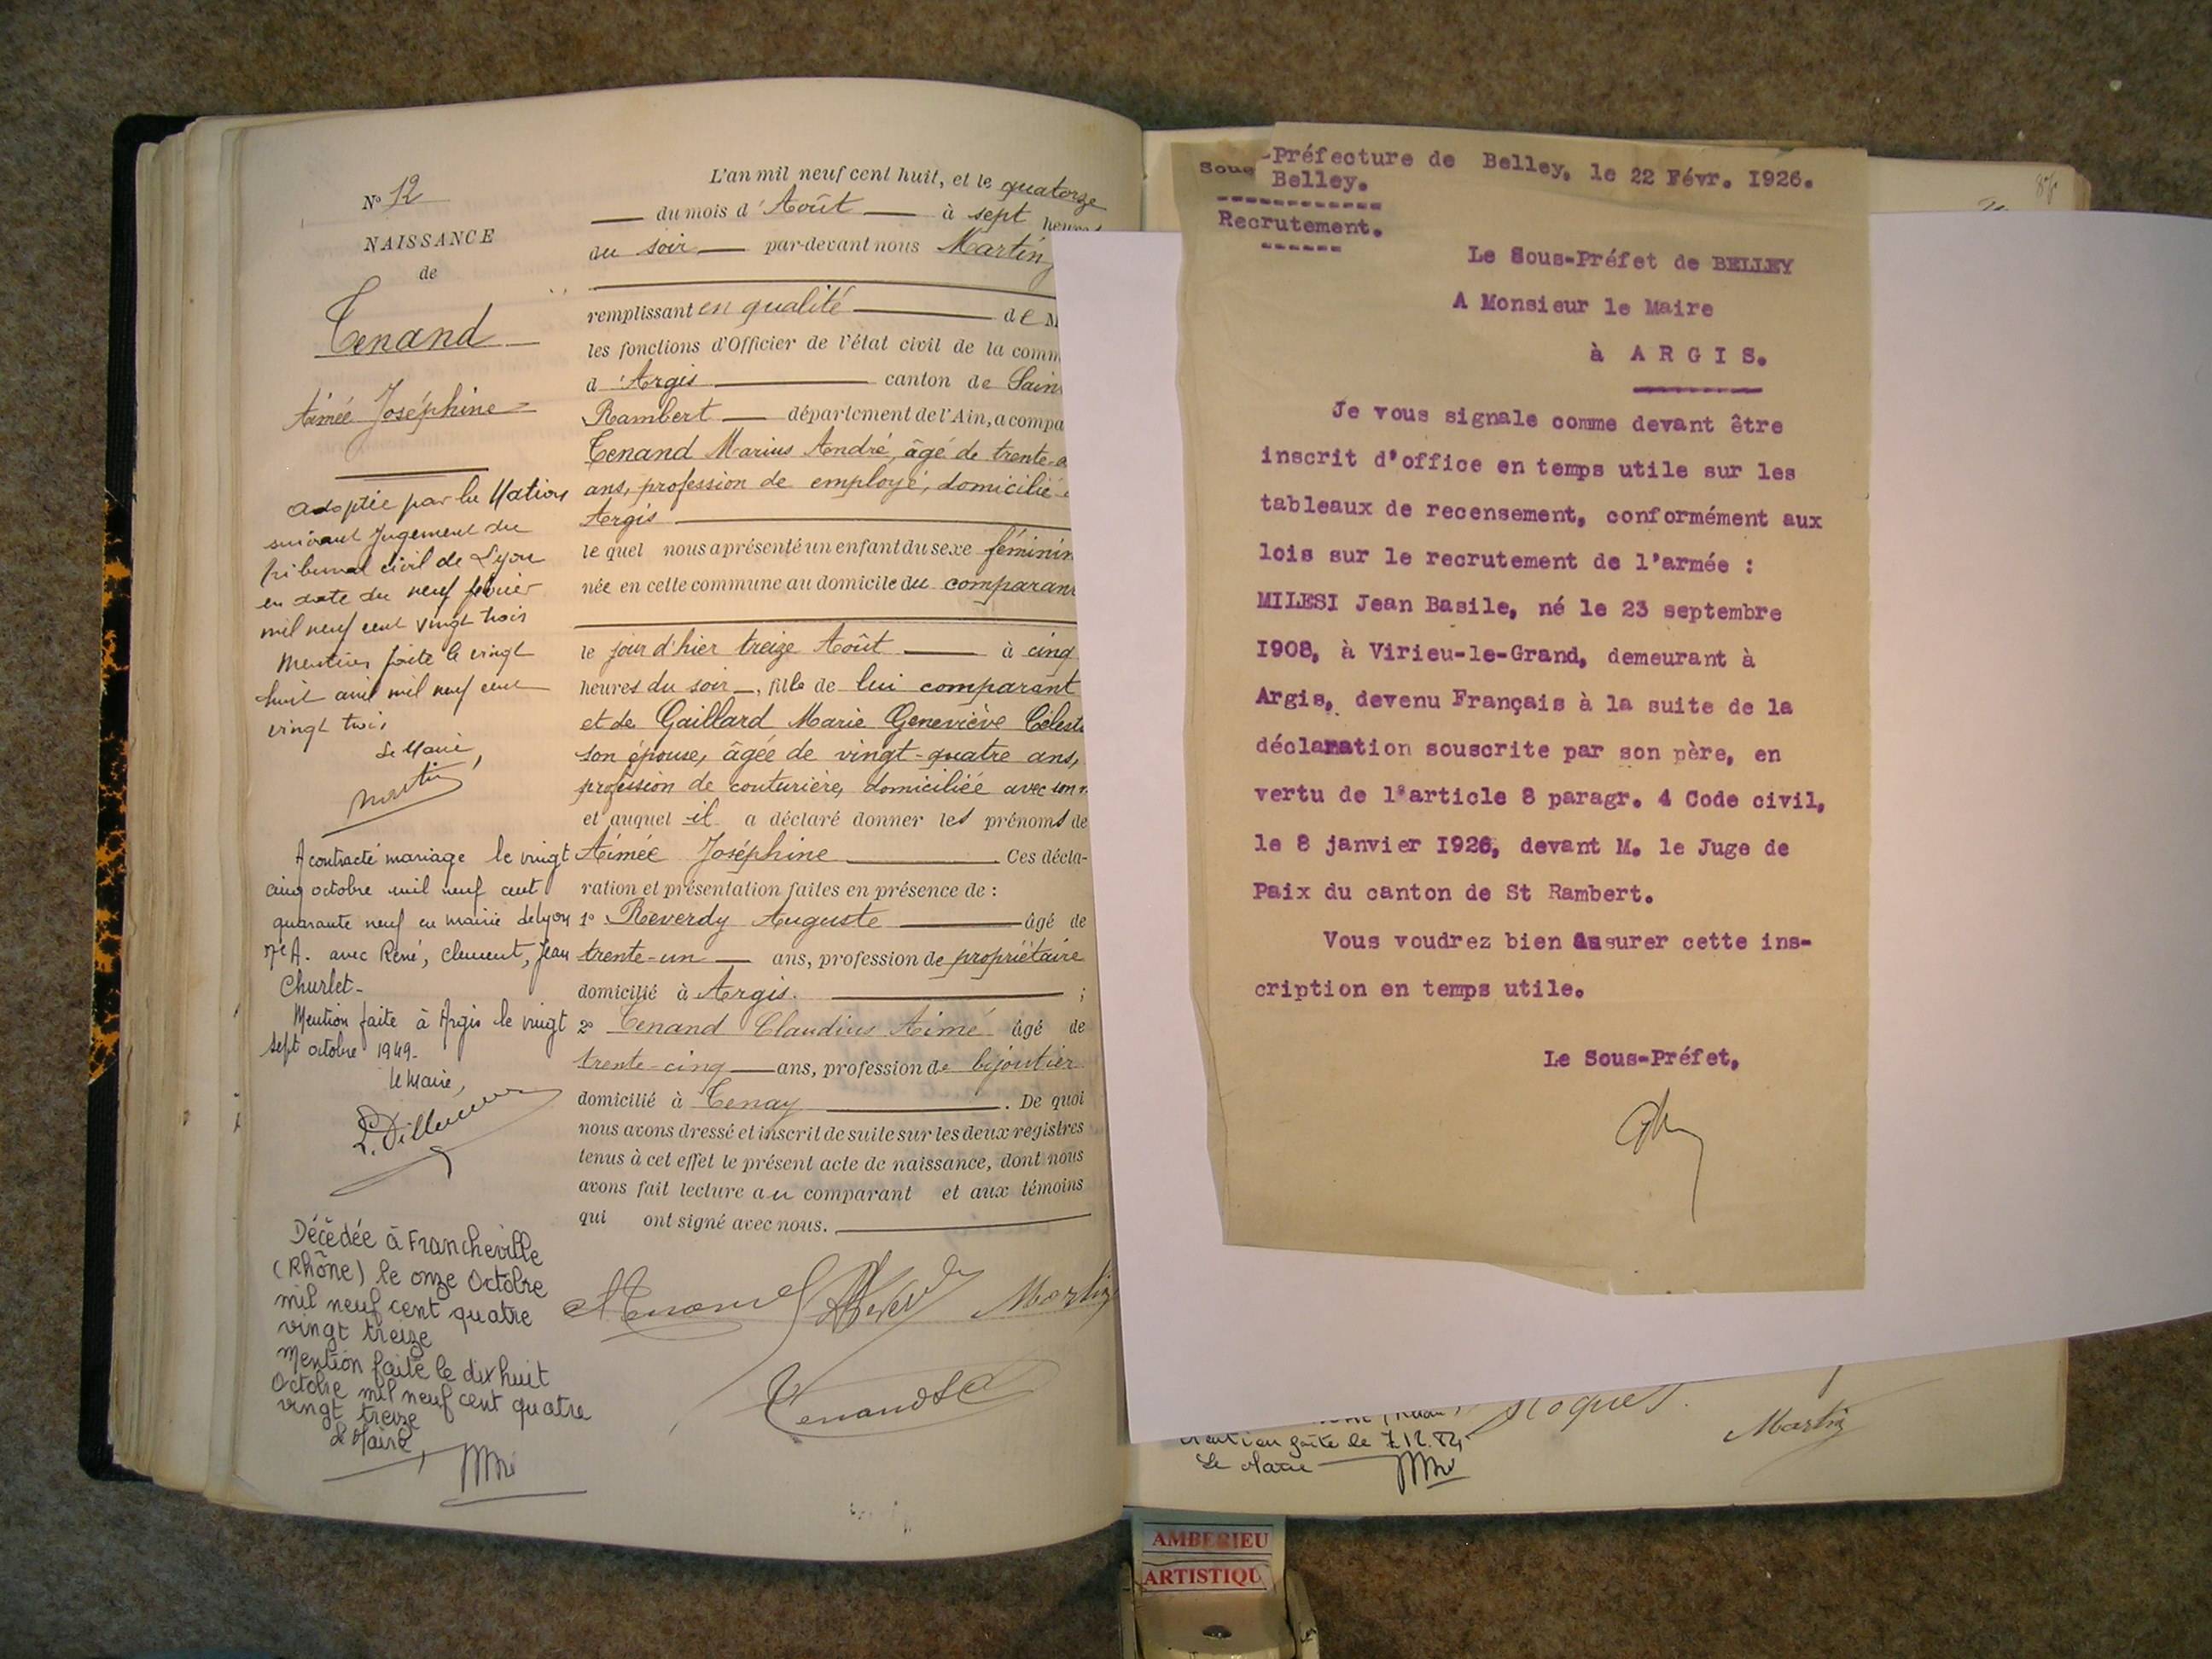 N° 12
NAISSANCE
de
Tenand
Aimée Joséphine
Adoptée par la Nation
suivant Jugement du
tribunal civil de Lyon
en date du neuf février
mil neuf cent vingt trois
Mention faite le vingt
huit avril mil neuf cent
vingt trois
Le Maire,
Martin
A contracté mariage le vingt
cinq octobre mil neuf cent
quarante neuf en mairie de Lyon
7e A. avec René, Clement, Jean
Churlet-
Mention faite à Argis le vingt
sept octobre 1949-
Le Maire,
Décédée à Francheville
(Rhône) le onze Octobre
mil neuf cent quatre
vingt treize
Mention faite le dix huit
Octobre mil neuf cent quatre
vingt treize
Le Maire
L'an mil neuf cent huit, et le quatorze
du mois d'Août à sept heures
du soir par-devant nous Martin
remplissant en qualité de M
les fonctions d'Officier de l'état civil de la comm
d'Argis canton de Sain
Rambert département de l'Ain, a compa
Tenand Marius André, âgé de trente-
ans, profession de employé, domicilié
Argis
le quel nous a présenté un enfant du sexe féminin
née en cette commune au domicile du comparant
le jour d'hier treize Août à cinq
heures du soir, fille de lui comparant
et de Gaillard Marie Geneviève Célest
son épouse, âgée de vingt-quatre ans,
profession de couturière, domiciliée avec son m
et auquel il a déclaré donner les prénoms de
Aimée Joséphine Ces décla-
ration et présentation faites en présence de :
1° Reverdy Auguste âgé de
trente-un ans, profession de propriétaire
domicilié à Argis. ;
2° Tenand Claudius Aimé âgé de
trente-cinq ans, profession de bijoutier
domicilié à Tenay . De quoi
nous avons dressé et inscrit de suite sur les deux registres
tenus à cet effet le présent acte de naissance, dont nous
avons fait lecture au comparant et aux témoins
qui ont signé avec nous.
Martin
Sous-Préfecture de Belley, le 22 Févr. I926.
Belley.
Recrutement.
Le Sous-Préfet de BELLEY
A Monsieur le Maire
à A R G I S.
Je vous signale comme devant être
inscrit d'office en temps utile sur les
tableaux de recensement, conformément aux
lois sur le recrutement de l'armée :
MILESI Jean Basile, né le 23 septembre
I908, à Virieu-le-Grand, demeurant à
Argis, devenu Français à la suite de la
déclaration souscrite par son père, en
vertu de l'article 8 paragr. 4 Code civil,
le 8 janvier I926, devant M. le Juge de
Paix du canton de St Rambert.
Vous voudrez bien assurer cette ins-
cription en temps utile.
Le Sous-Préfet,
Mention faite le 7.12.84
Le Maire
Martin
AMBERIEU
ARTISTIQU